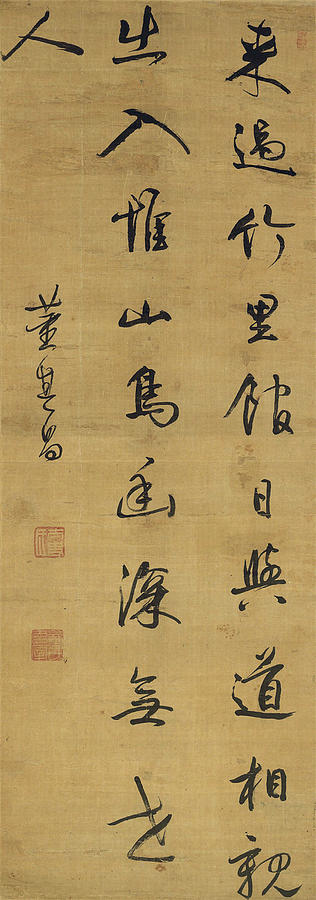 来過竹里館日與道相親
出入惟山鳥幽深無世
人
董其昌